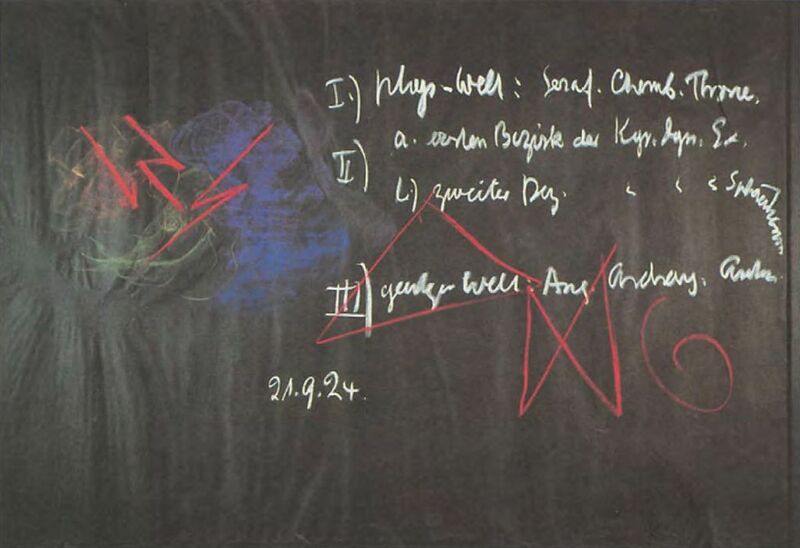 I.) phys-Welt: Seraf. Cherub. Throne.
II) a. ersten Bezirk der Kyr. Dyn. Ex.
b) zweiter Bez. " " "
III) geistge Welt: Ang. Archang. Archai
21.9.24.